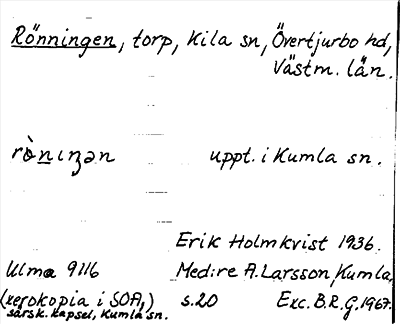 Rönningen, torp, Kila sn, Övertjurbo hd,
Västm. län.
rò̀nıŋən uppt. i Kumla sn.
Erik Holmkvist 1936.
Ulma 9116 Med:re A. Larsson, Kumla,
(xerokopia i SOA,) s.20 Exc. B.R.G. 1967.
särsk. kapsel, Kumla sn.